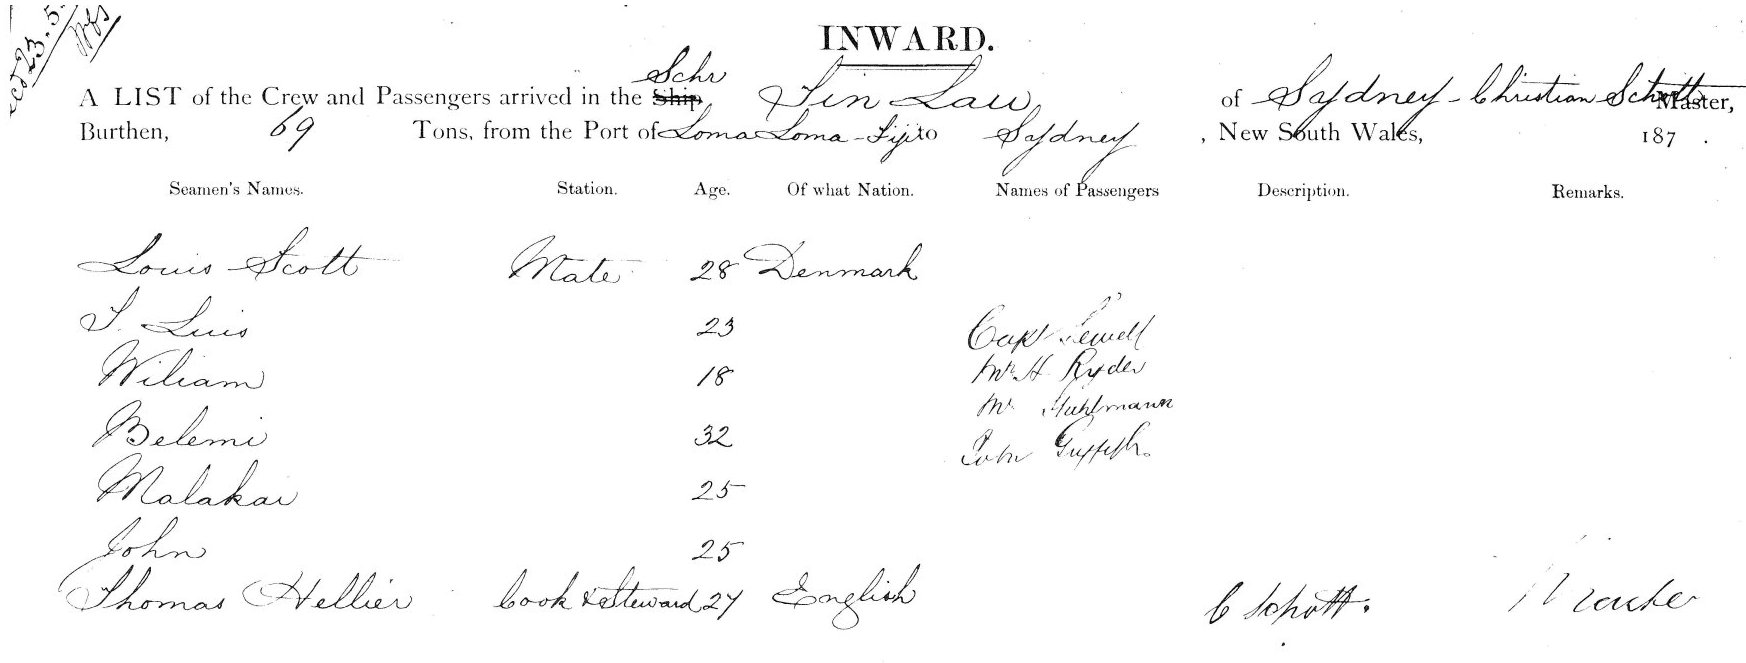 23.5.
INWARD.
Schr
A LIST of the Crew and Passengers arrived in the Ship, Tin Lau of Sydney - Christian Schott Master,
Burthen, 69 Tons, from the Port of Loma Loma - Fiji to Sydney, New South Wales, 187 .
Seamen's Names. Station. Age. Of what Nation. Names of Passengers Description. Remarks.
Louis Scott Mate 28 Denmark
T. Luis 23 Capt Sewell
Wiliam 18 Mr. H Ryder
Belemi 32 Mr
John Griffith.
Malakai 25
John 25
Thomas Hellier Cook & Steward 27 English C Schott. Master